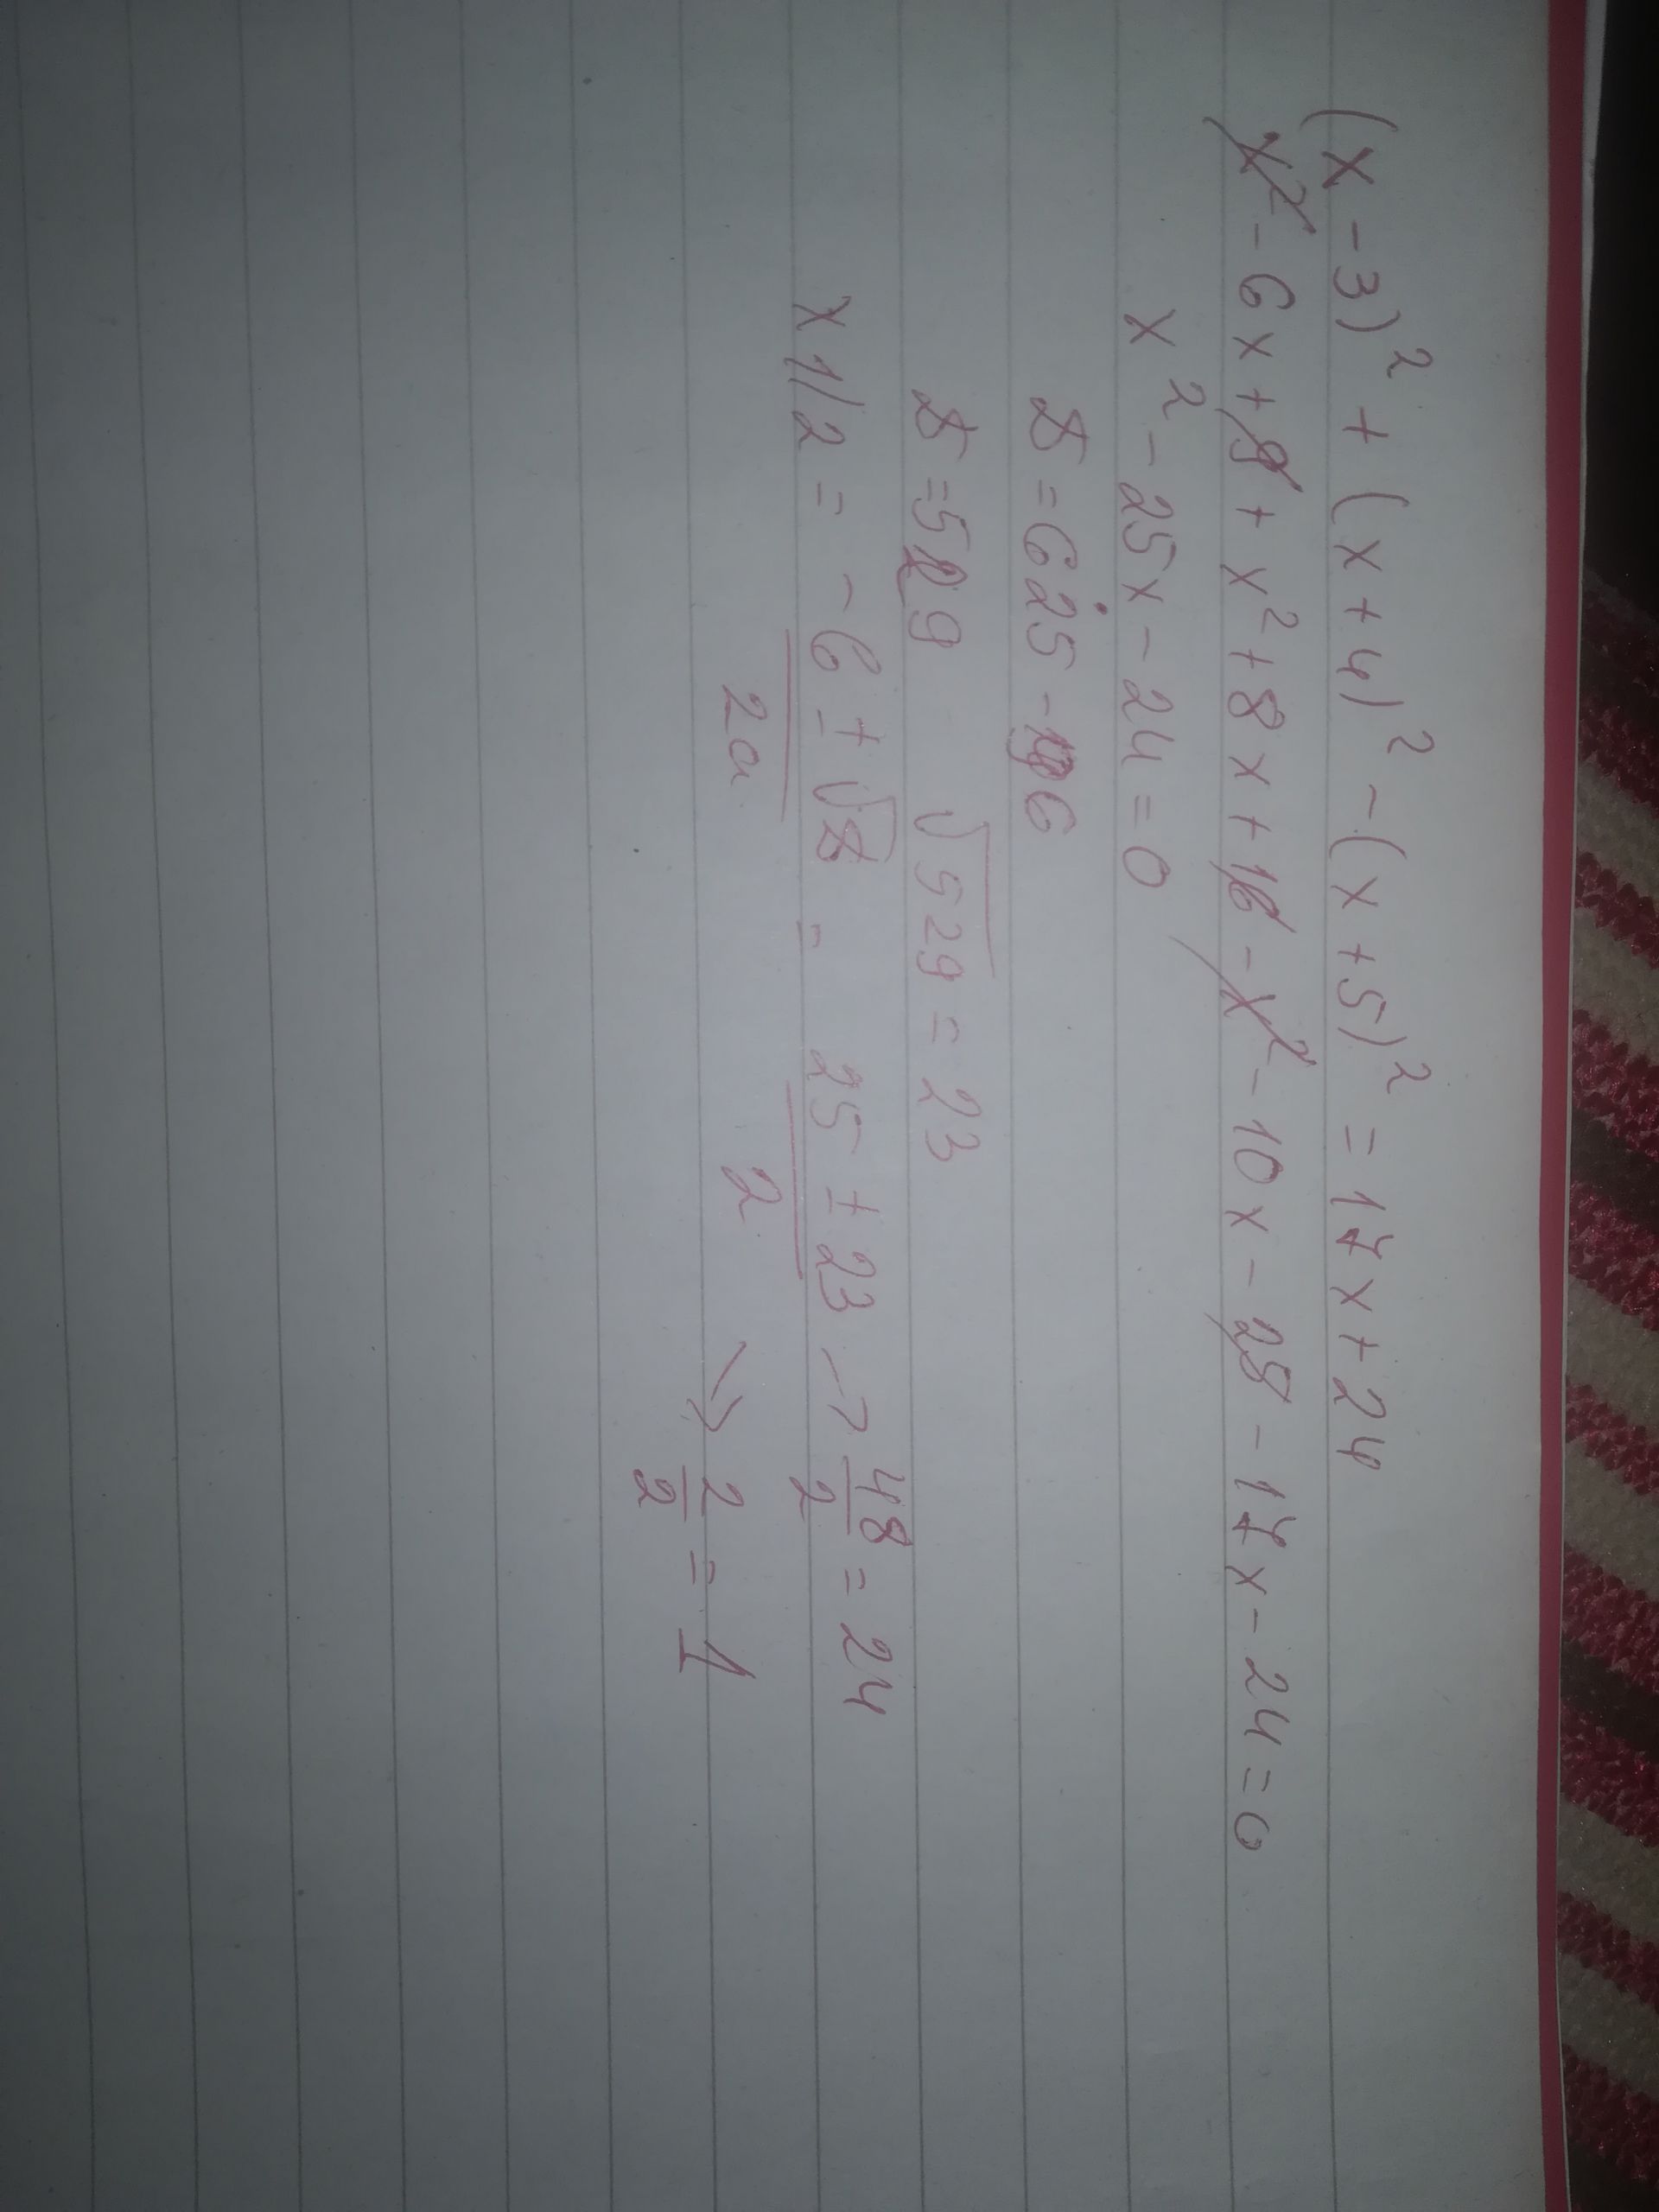 (x-3)² + (x+4)² - (x+5)² = 17x + 24
x² - 6x + 9 + x² + 8x + 16 - x² - 10x - 25 - 17x - 24 = 0
x² - 25x - 24 = 0
= 625 - 96
= 529 √529 = 23
x 1/2 = -b ± √ / 2a = 25 ± 23 / 2 → 48/2 = 24
→ 2/2 = 1